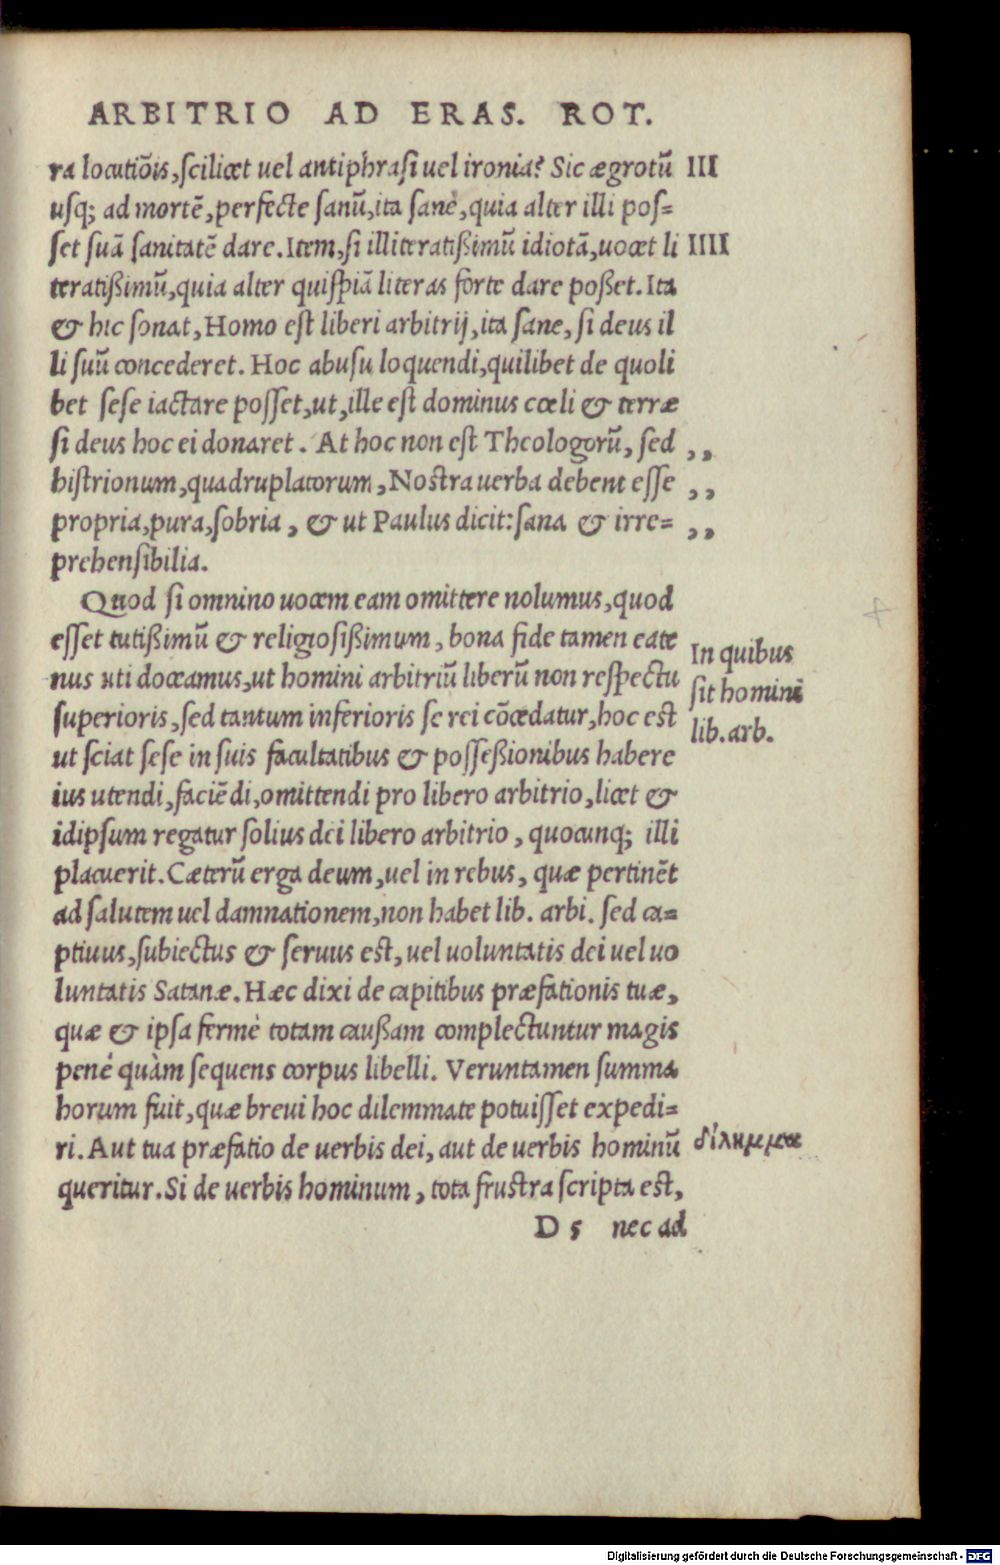 ARBITRIO AD ERAS. ROT.
ra locutiõis, scilicet uel antiphrasi uel ironia? Sic ægrotũ III
usq; ad mortẽ, perfecte sanũ, ita sanè, quia alter illi pos=
set suã sanitatẽ dare. Item, si illiteratißimũ idiotã, uocet li IIII
teratißimũ, quia alter quispiã literas forte dare poßet. Ita
& hic sonat, Homo est liberi arbitrij, ita sane, si deus il
li suũ concederet. Hoc abusu loquendi, quilibet de quoli
bet sese iactare posset, ut, ille est dominus cœli & terræ
si deus hoc ei donaret. At hoc non est Theologorũ, sed ,,
histrionum, quadruplatorum, Nostra uerba debent esse ,,
propria, pura, sobria, & ut Paulus dicit: sana & irre= ,,
prehensibilia.
Quod si omnino uocem eam omittere nolumus, quod
esset tutißimũ & religiosißimum, bona fide tamen eate
nus uti doceamus, ut homini arbitriũ liberũ non respectu
superioris, sed tantum inferioris se rei cõcedatur, hoc est
ut sciat sese in suis facultatibus & posseßionibus habere
ius utendi, faciẽdi, omittendi pro libero arbitrio, licet &
idipsum regatur solius dei libero arbitrio, quocunq; illi
placuerit. Cæterũ erga deum, uel in rebus, quæ pertinẽt
ad salutem uel damnationem, non habet lib. arbi. sed ca=
ptiuus, subiectus & seruus est, uel uoluntatis dei uel uo
luntatis Satanæ. Hæc dixi de capitibus præfationis tuæ,
quæ & ipsa fermè totam caußam complectuntur magis
pené quàm sequens corpus libelli. Veruntamen summa
horum fuit, quæ breui hoc dilemmate potuisset expedi=
ri. Aut tua præfatio de uerbis dei, aut de uerbis hominũ
queritur. Si de uerbis hominum, tota frustra scripta est,
D 5 nec ad
In quibus
sit homini
lib. arb.
δίλημματα
Digitalisierung gefördert durch die Deutsche Forschungsgemeinschaft - DFG